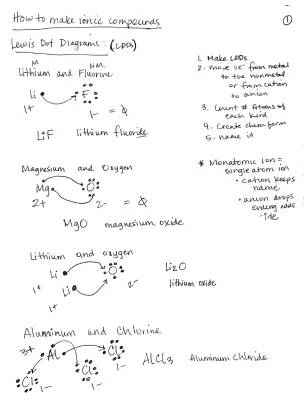 How to make ionic compounds
①
Lewis Dot Diagrams: (LDDs)
M NM
Lithium and Fluorine
Li F
1+ 1- = 0
LiF lithium fluoride
1. Make LDDs
2. move ve⁻ from metal
to the nonmetal
or from cation
to anion
3. Count # Atoms of
each kind
4. Create chem form
5. name it
* Monatomic Ion =
single atom ion
• cation keeps
name
• anion drops
ending adds
-ide
Magnesium and Oxygen
Mg O
2+ 2- = 0
MgO magnesium oxide
Lithium and oxygen
Li O
1+ Li 2-
1+
Li2O
lithium oxide
Aluminum and Chlorine
3+ Al Cl
1-
Cl Cl
1- 1-
AlCl3 Aluminum Chloride